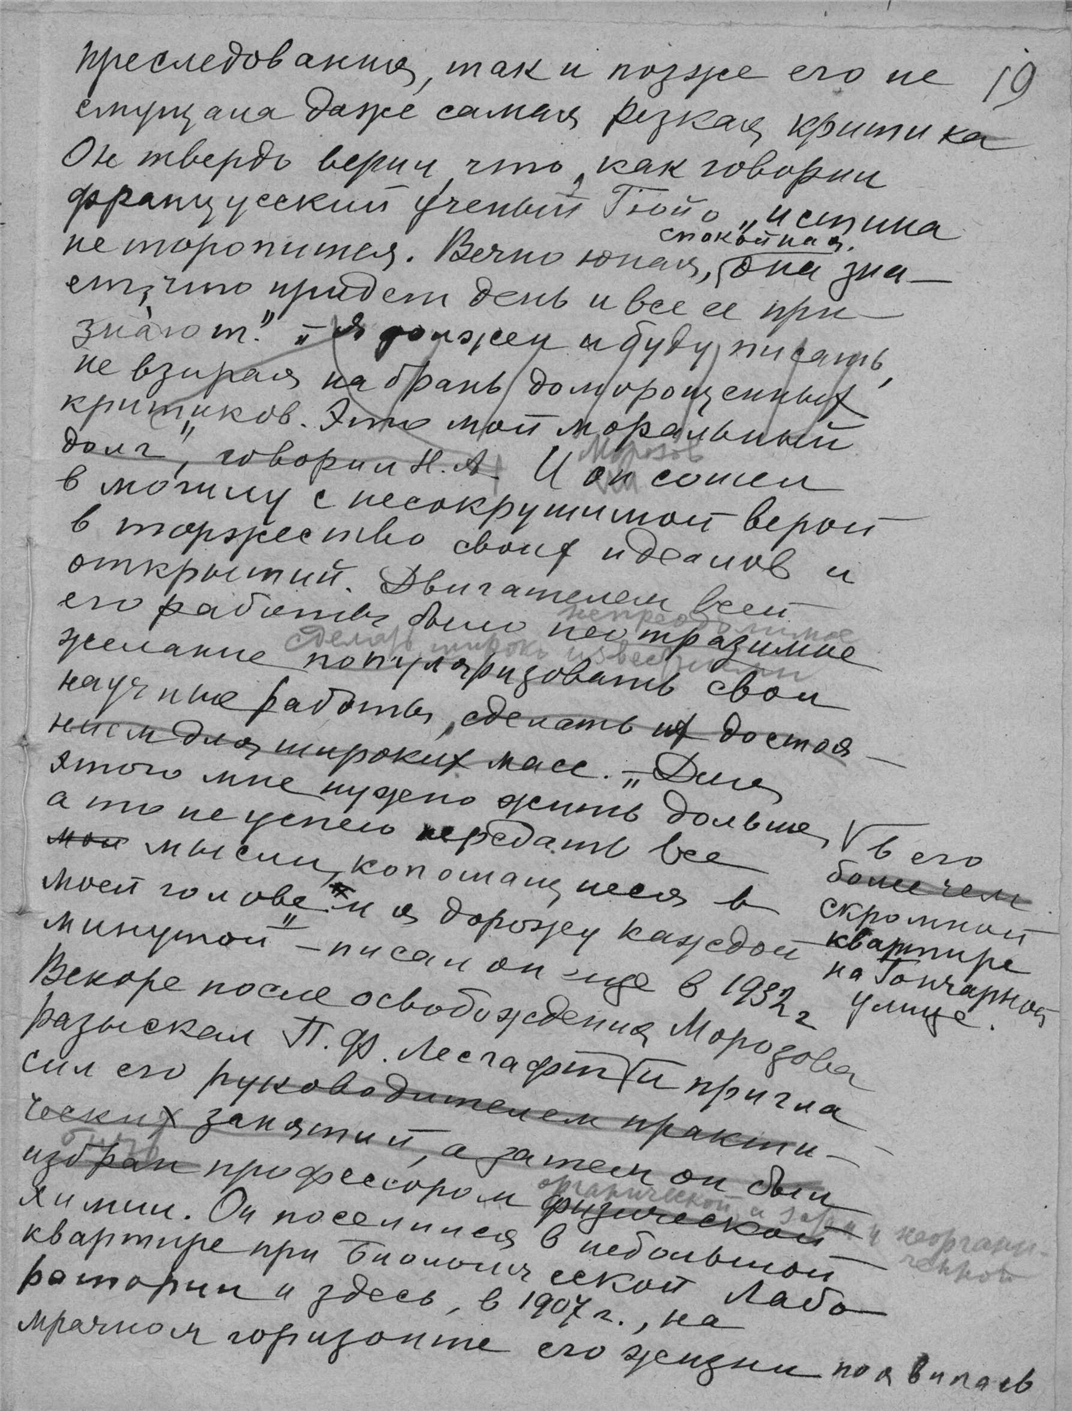 19
преследования, так и позже его не
смущала даже самая резкая критика
Он твердо верил, что, как говорил
французский ученый Гюйо „истина
не торопится. Вечно юная, спокойная, она зна-
ет, что придет день и все ее при-
знают." „Я должен и буду писать,
не взирая на брань доморощенных
критиков. Это мой моральный
долг", говорил Н.А. Морозов
И он сошел
в могилу с несокрушимой верой
в торжество своих идеалов и
открытий. Двигателем всей
его работы было неотразимое
непреодолимое
сделать широко известными
желание популяризовать свои
научные работы, сделать их достоя-
нием для широких масс. – „Для
этого мне нужно жить дольше,
а то не успею передать все
мои мысли, копошащиеся в
моей голове и я дорожу каждой
минутой" – писал он еще в 1932 г
в его
более чем
скромной
квартире
на Гончарной
улице.
Вскоре после освобождения Морозова
разыскал П.Ф. Лесгафт и пригла-
сил его руководителем практи-
ческих занятий, а затем он был
избран профессором физической
органической, а затем и неоргани-
ческой
химии. Он поселился в небольшой
квартире при Биологической Лабо-
ратории и здесь, в 1907 г., на
мрачном горизонте его жизни появилась